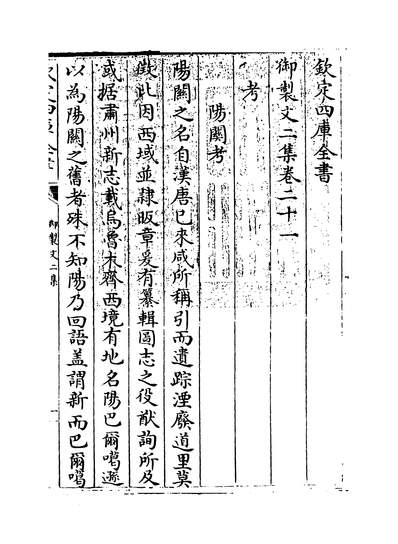 欽定四庫全書
御製文二集卷二十一
考
陽關考
陽關之名自漢唐已來咸所稱引而遺踪湮廢道里莫
欵此因西域並隸版章爰有纂輯圖志之役猷詢所及
或据肅州新志載烏魯木齊西境有地名陽巴爾噶遜
以為陽關之舊者殊不知陽乃回語盖謂新而巴爾噶
御製文二集
一